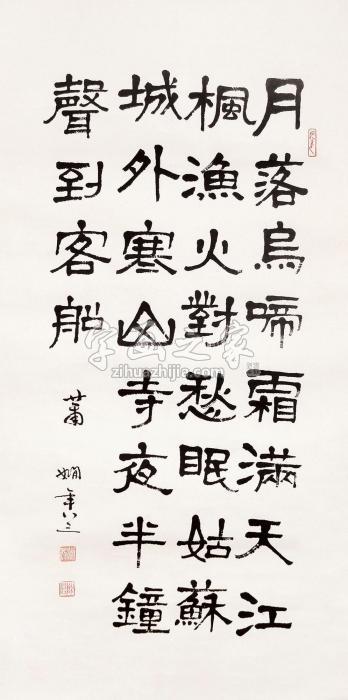 月落烏啼霜滿天江
楓漁火對愁眠姑蘇
城外寒山寺夜半鐘
聲到客船
蕭嫻年八三
字画之家
zihuazhijie.com